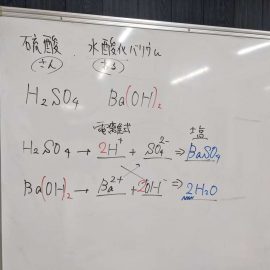 硫酸 . 水酸化バリウム
H₂SO₄ Ba(OH)₂
電離式 塩
H₂SO₄ → 2H⁺ + SO₄²⁻ ⇒ BaSO₄
Ba(OH)₂ → Ba²⁺ + 2OH⁻ ⇒ 2H₂O